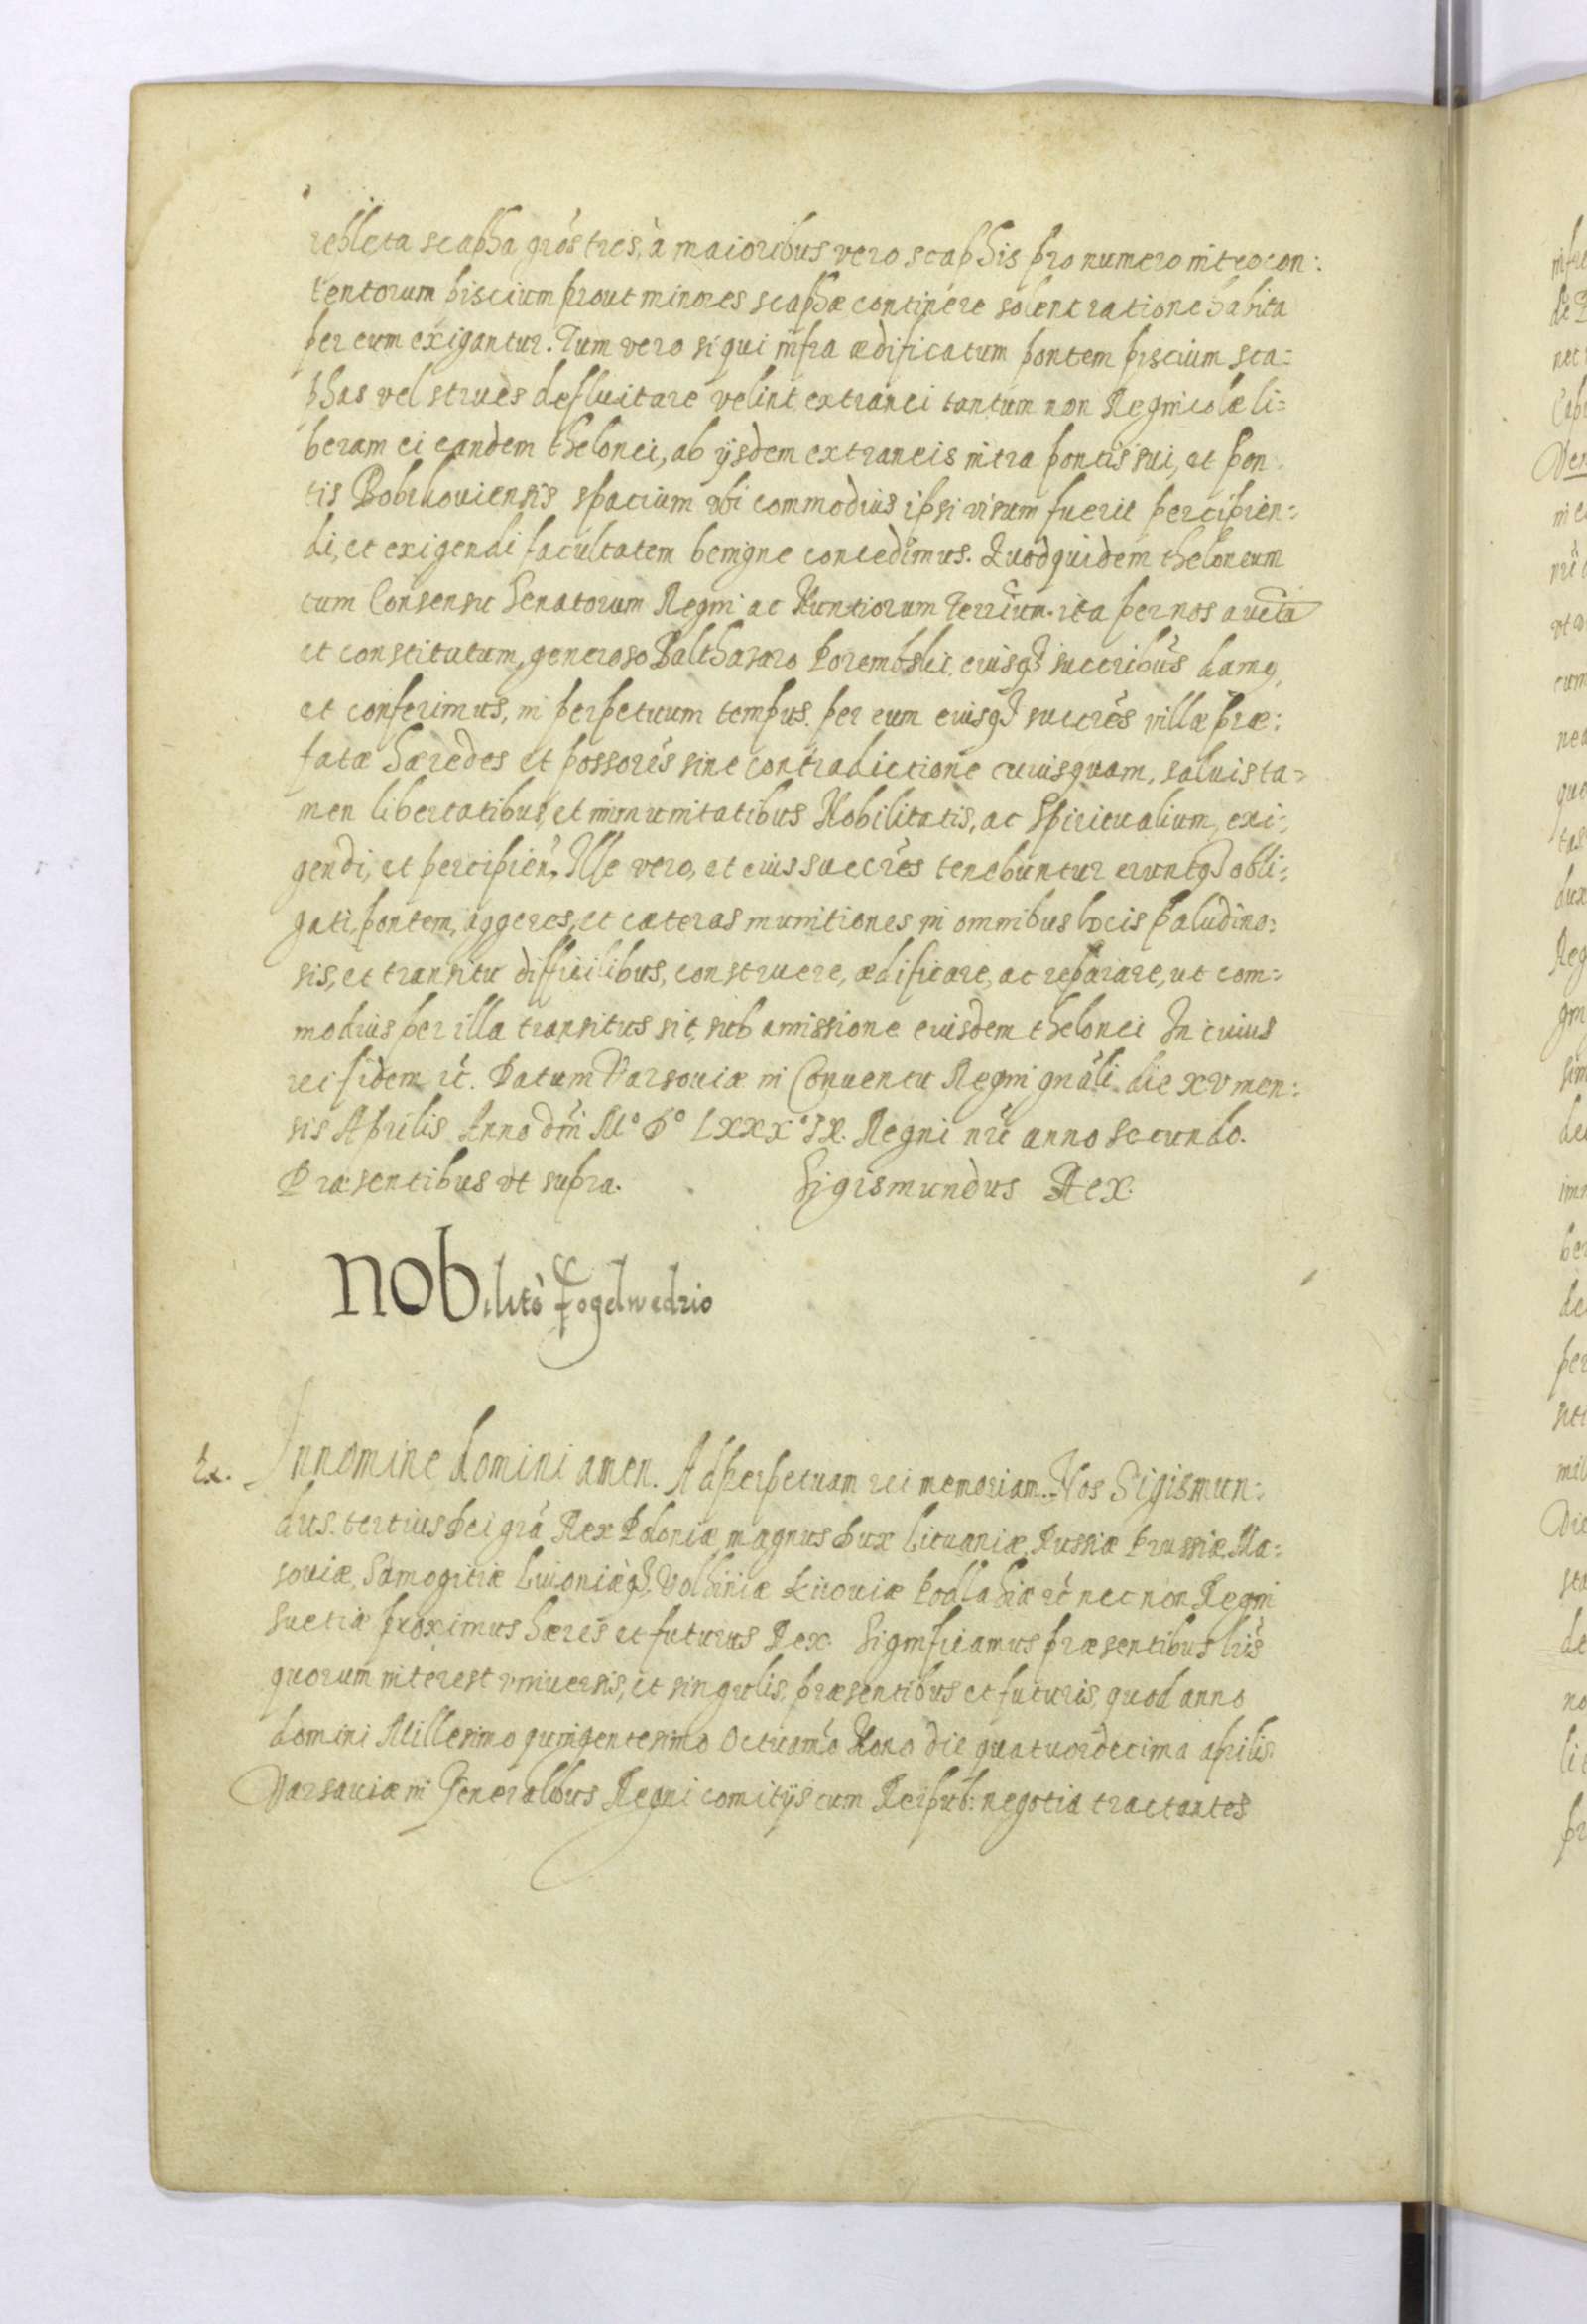 repleta scapha gros tres, à maioribus vero scaphis pro numero introcon:
tentorum piscium prout minores scaphæ continere solent ratione habita
per eum exigantur. Tum vero si qui infra ædificatum pontem piscium sca:
phas vel strues defluitare velint extranei tantum non Regnicolæ li:
beram ei eandem thelonei, ab ijsdem extraneis intra pontis sui, et pon
tis Bobrkoviensis spacium vbi commodius ipsi visum fuerit percipien:
di, et exigendi facultatem benigne concedimus. Quodquidem theloneum
cum Consensu Senatorum Regni ac Nuntiorum Terrium. ita per nos aucta
et constitutum, generoso Balthasaro Porembski, eiusq3 succribus damq
et conferimus, in perpetuum tempus. per eum eiusq3 succres villæ præ:
fatæ hæredes et possores sine contradictione cuiusquam, saluis ta=
men libertatibus, et immunitatibus Nobilitatis, ac Spiritualium, exi:
gendi, et percipien. Ille vero, et eius succres tenebuntur eruntq3 obli:
gati, pontem, aggeres, et cæteras munitiones in omnibus locis paludino:
sis, et transitu difficilibus, construere, ædificare, ac reparare, ut com:
modius per illa transitus sit, sub amissione eiusdem thelonei In cuius
rei fidem rc. Datum Varsoviæ in Conventu Regni gnali. die xv men:
sis Aprilis Anno dni M° D° LXXX° IX. Regni nri anno secundo.
Præsentibus vt supra. Sigismundus Rex.
Nobilito Fogelwedrio
Ex. In nomine Domini amen. Ad perpetuam rei memoriam. Nos Sigismun:
dus. tertius Dei gra Rex Poloniæ magnus Dux Lituaniæ, Russiæ Prussiæ, Ma:
soviæ, Samogitiæ Liuoniæq3, Volhiniæ Kiioviæ Podlahiæ rc nec non Regni
Suetiæ proximus hæres et futurus Rex. Significamus præsentibus lris
quorum interest vniuersis, et singulis, præsentibus et futuris, quod anno
domini Millesimo quingentesimo Octuamo Nono die quatuordecima aprilis
Varsauiæ in Generalibus Regni comitijs cum Reipub: negotia tractantes